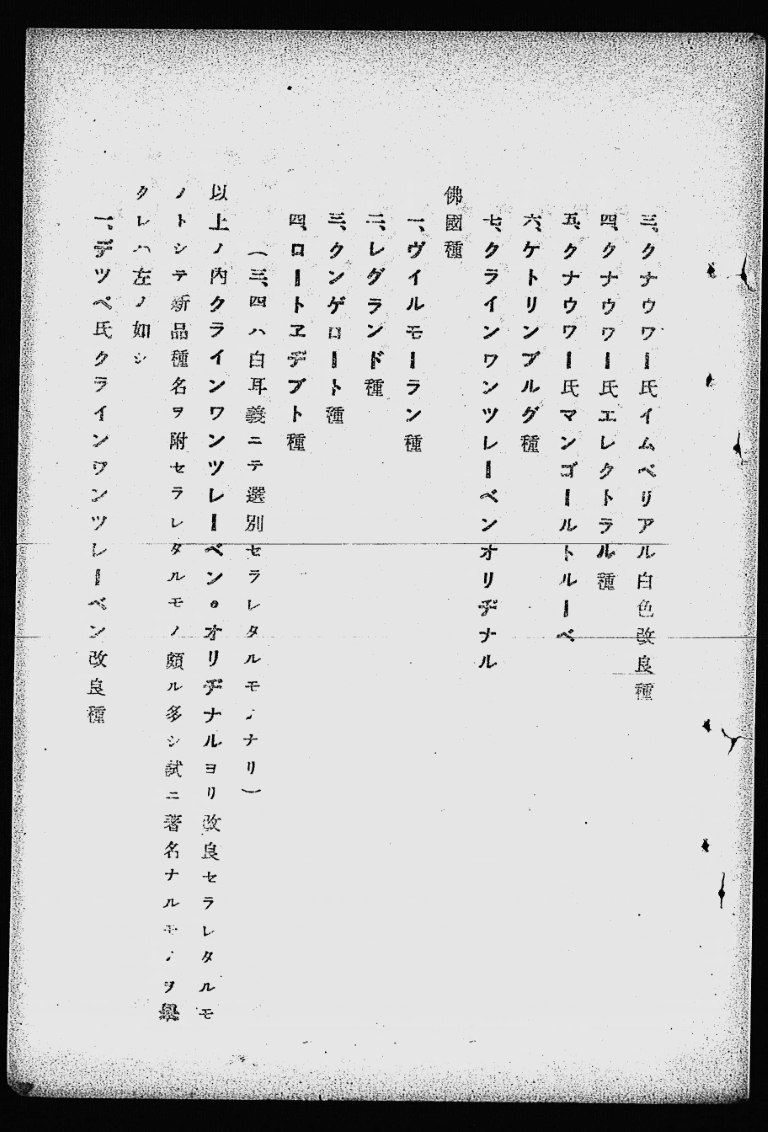 三、クナウワー氏イムペリアル白色改良種
四、クナウワー氏エレクトラル種
五、クナウワー氏マンゴールトルーベ
六、ケトリンブルグ種
七、クラインワンツレーベンオリヂナル
佛國種
一、ヴイルモーラン種
二、レグランド種
三、クンゲロート種
四、ロートヱデプト種
(三、四ハ白耳義ニテ選別セラレタルモノナリ)
以上ノ內クラインワンツレーベン。オリヂナルヨリ改良セラレタルモ
ノトシテ新品種名ヲ附セラレタルモノ頗ル多シ試ニ著名ナルモノヲ擧
クレハ左ノ如シ
一、デツペ氏クラインワンツレーベン改良種